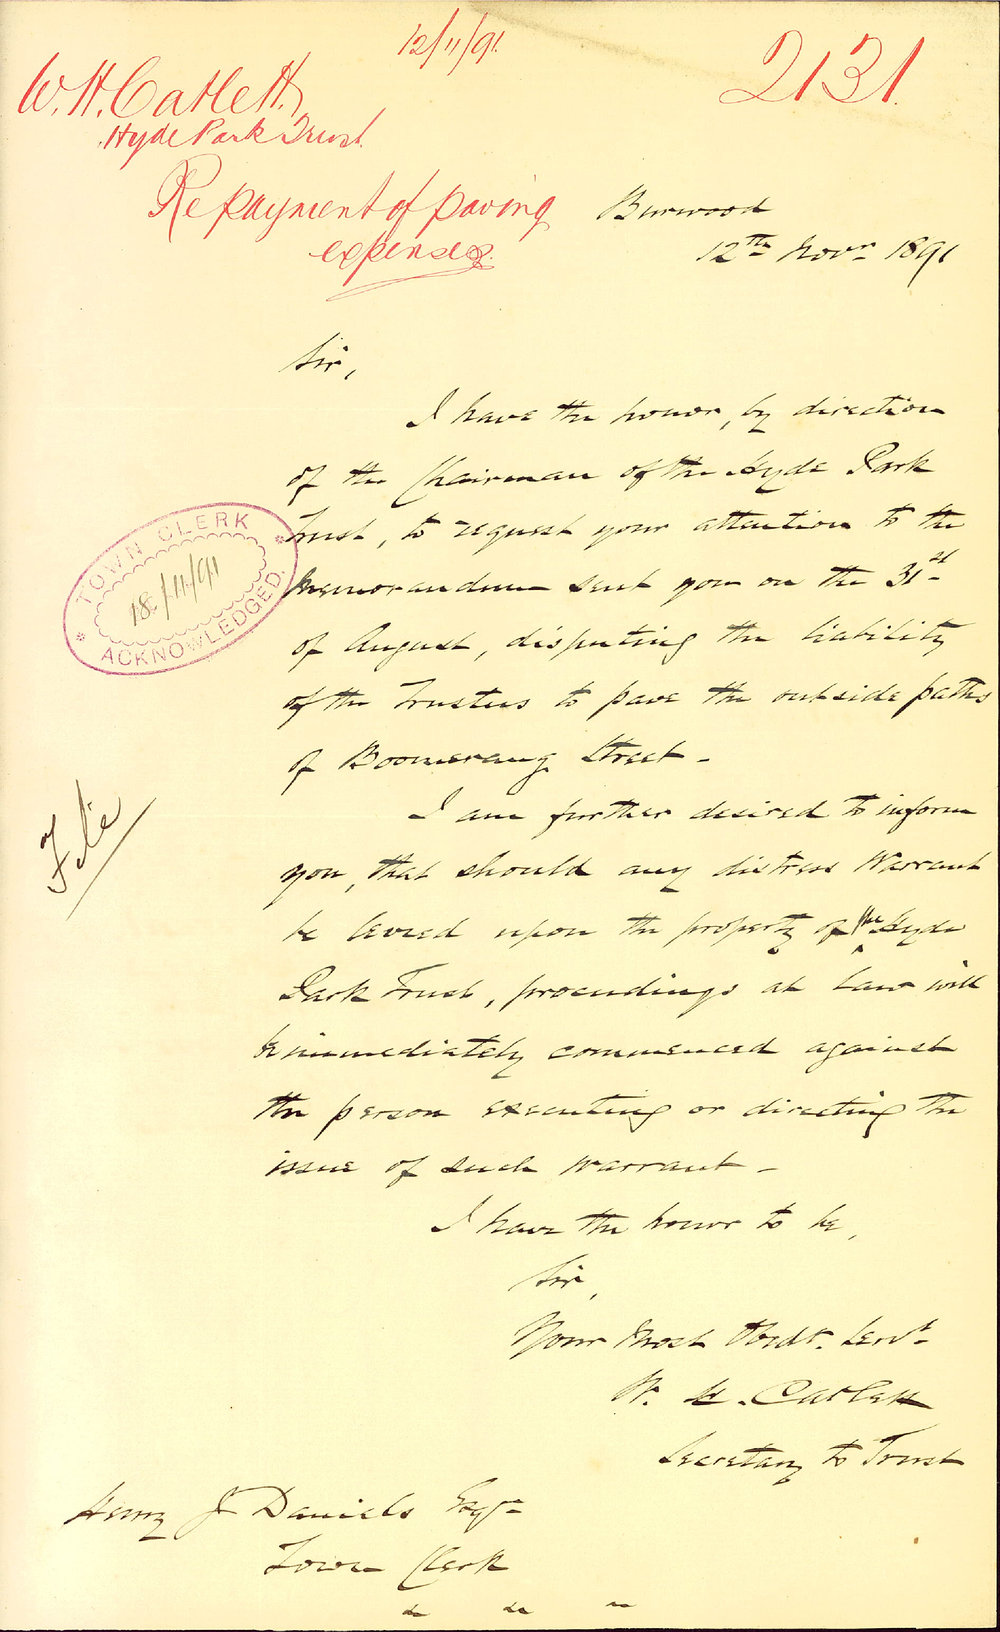 12/11/91
2131
W. H. Catlett,
Hyde Park Trust
Repayment of paving
expenses.
Burwood
12th Novr 1891
Sir,
I have the honor, by direction
of the Chairman of the Hyde Park
Trust, to request your attention to the
memorandum sent you on the 31st
of August, disputing the liability
of the Trustees to pave the outside paths
of Boomerang Street -
TOWN CLERK
18/11/91
ACKNOWLEDGED.
File
I am further desired to inform
you, that should any distress Warrant
be levied upon the property of the Hyde
Park Trust, proceedings at Law will
be immediately commenced against
the person executing or directing the
issue of such warrant -
I have the honor to be,
Sir,
Your Most Obedt. Servt
W. H. Catlett
Secretary to Trust
Henry J Daniels Esqr
Town Clerk